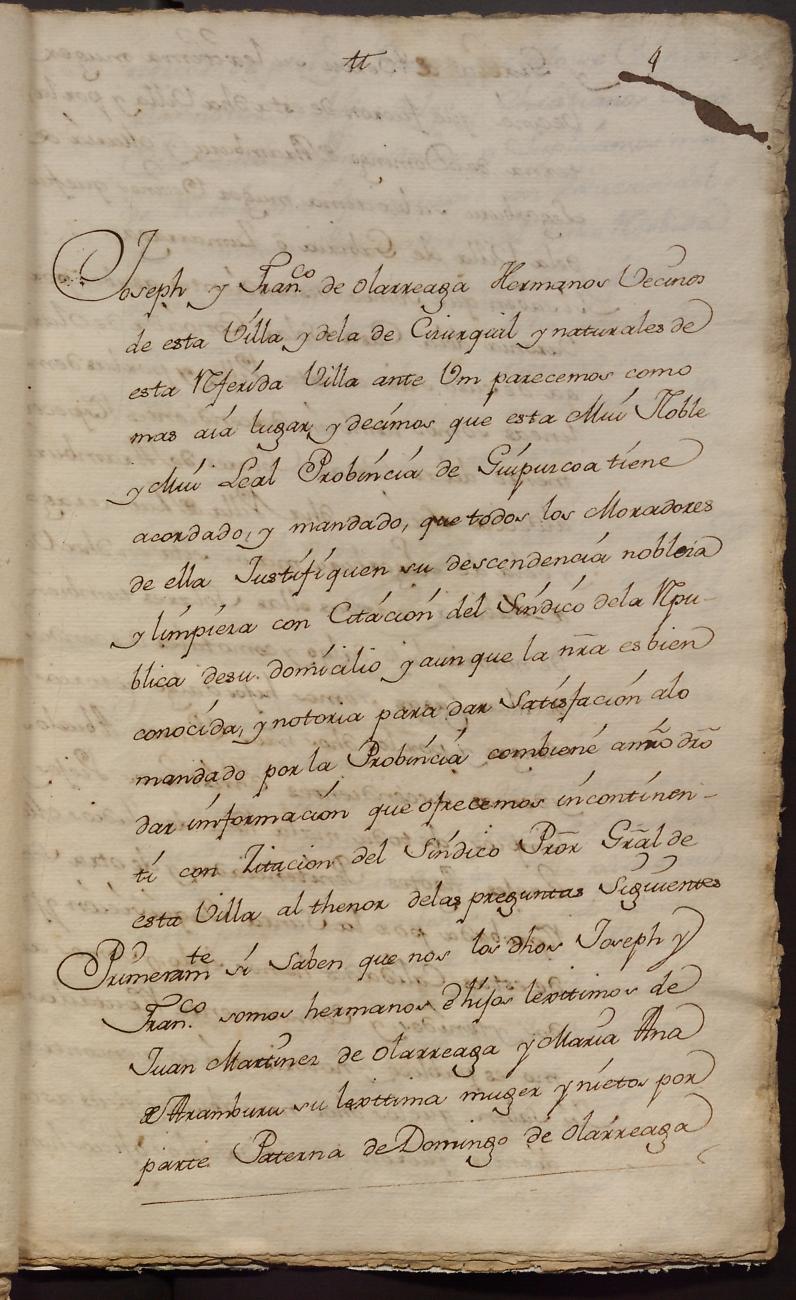 tt 4
Joseph y Fran.co de olarreaga Hermanos Vecinos
de esta Villa y dela de Cizurquil y naturales de
esta Rferida Villa ante Vm parecemos como
mas aiá lugar, y decimos que esta Mui Noble
y Mui Leal Probincia de Guipuscoa tiene
acordado, y mandado, que todos los Moradores
de ella Justifiquen su descendencia nobleza
y limpieza con Citación del Sindico dela Rpu-
blica desu domicilio y aun que la nr̃a es bien
conocida, y notoria para dar Satisfación alo
mandado por la Probincia combiene anr̃o dr̃o
dar imformación que ofrecemos incontinen-
ti con Zitacion del Sindico Pror̃ Gr̃al de
esta Villa al thenor delas preguntas Siguientes
Primeramte si Saben que nos los dhos Joseph y
Fran.co somos hermanos é hijos lexitimos de
Juan Martinez de olarreaga y Maria Ana
de Aramburu su lexittima muger y nietos por
parte Paterna de Domingo de olarreaga